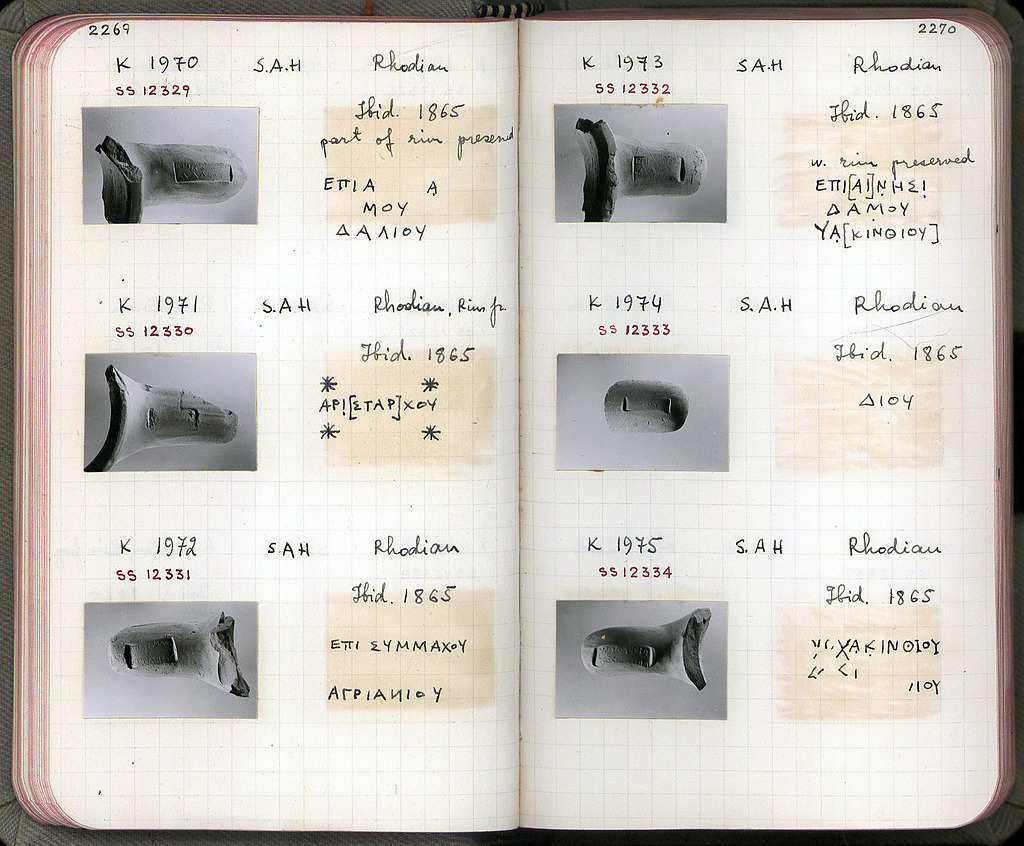 2269
K 1970 S.A.H Rhodian
SS 12329
Ibid. 1865
part of rim preserved
ΕΠΙΑ Α
ΜΟΥ
ΔΑΛΙΟΥ
K 1971 S.A.H Rhodian, Rim fr.
SS 12330
Ibid. 1865
* *
ΑΡΙ[ΣΤΑΡ]ΧΟΥ
* *
K 1972 S.A.H Rhodian
SS 12331
Ibid. 1865
ΕΠΙ ΣΥΜΜΑΧΟΥ
ΑΓΡΙΑΝΙΟΥ
2270
K 1973 S.A.H Rhodian
SS 12332
Ibid. 1865
w. rim preserved
ΕΠΙ[ΑΙ]ΝΗΣΙ
ΔΑΜΟΥ
ΥΑ[ΚΙΝΘΙΟΥ]
K 1974 S.A.H Rhodian
SS 12333
Ibid. 1865
ΔΙΟΥ
K 1975 S.A.H Rhodian
SS 12334
Ibid. 1865
ΑΚΙΝΘΙΟΥ
ΙΟΥ